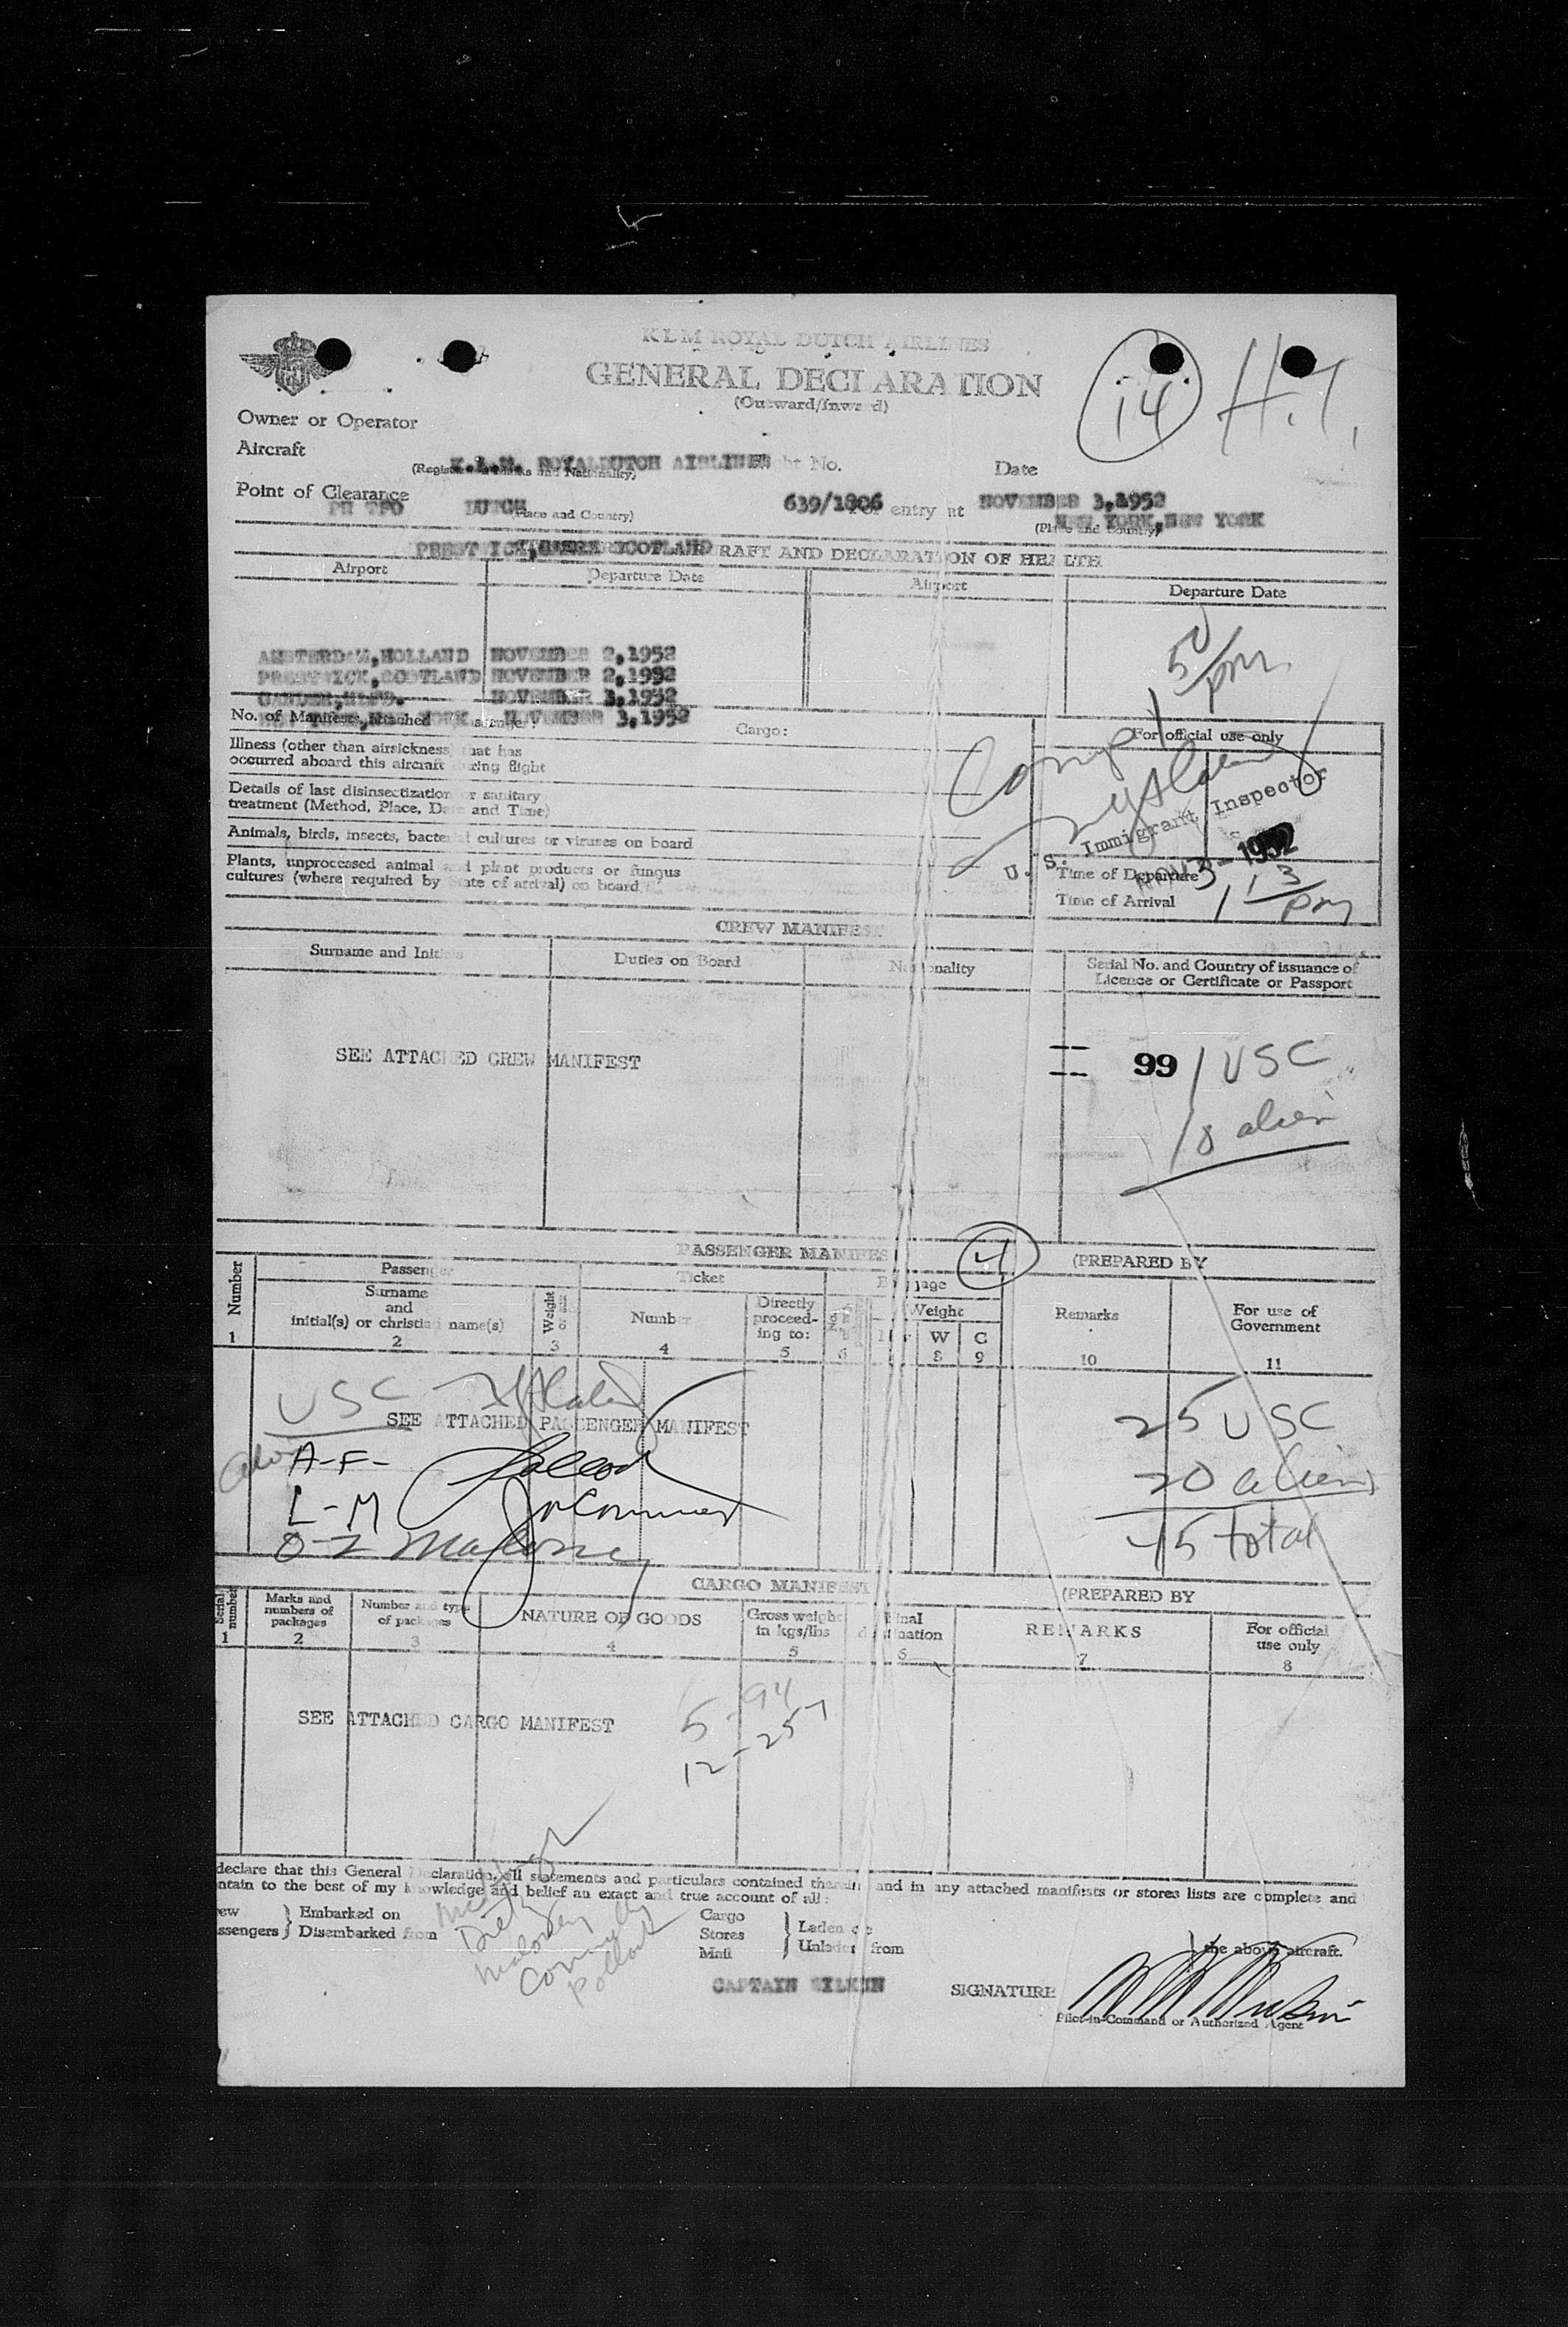 KLM ROYAL DUTCH AIRLINES
GENERAL DECLARATION
(Outward/Inward)
14 H.T.
Owner or Operator
Aircraft K.L.M. ROYALDUTCH AIRLINES No. Date
Point of Clearance (Place and Country) 639/1806 entry at NOVEMBER 3,1952
DUTCH NEW YORK,NEW YORK
(Place and Country)
AIRCRAFT AND DECLARATION OF HEALTH
Airport Departure Date Airport Departure Date
AMSTERDAM,HOLLAND NOVEMBER 2,1952
PRESTWICK,SCOTLAND NOVEMBER 2,1952
GANDER,NLFD. NOVEMBER 3,1952
NOVEMBER 3,1952
1 50 pm
No. of Manifests attached Cargo: For official use only
Illness (other than airsickness) that has
occurred aboard this aircraft during flight
Details of last disinsectization or sanitary
treatment (Method, Place, Date and Time)
U. S. Immigrant Inspector
Animals, birds, insects, bacterial cultures or viruses on board
NOV 3-1952
Plants, unprocessed animal and plant products or fungus
cultures (where required by State of arrival) on board
Time of Departure
Time of Arrival 1 13 pm
CREW MANIFEST
Surname and Initials Duties on Board Nationality Serial No. and Country of issuance of
Licence or Certificate or Passport
SEE ATTACHED CREW MANIFEST 99 / USC
10 alien
PASSENGER MANIFEST 4 (PREPARED BY
Number Passenger Ticket Baggage
Surname
and
initial(s) or christian name(s) Weight Number Directly
proceed-
ing to: Weight Remarks For use of
Government
W C
1 2 3 4 5 6 8 9 10 11
USC
SEE ATTACHED PASSENGER MANIFEST 25 USC
A-F- 20 alien
L-M
O-Z 45 total
CARGO MANIFEST (PREPARED BY
Serial
number Marks and
numbers of
packages Number and type
of packages NATURE OF GOODS Gross weight
in kgs/lbs Final
destination REMARKS For official
use only
1 2 3 4 5 6 7 8
SEE ATTACHED CARGO MANIFEST 5-94
12-257
declare that this General Declaration, all statements and particulars contained therein and in any attached manifests or stores lists are complete and
ntain to the best of my knowledge and belief an exact and true account of all:
ew Embarked on Cargo Laden on
ssengers Disembarked from Stores Unladen from the above aircraft.
Mail
CAPTAIN SIGNATURE
Pilot-in-Command or Authorized Agent